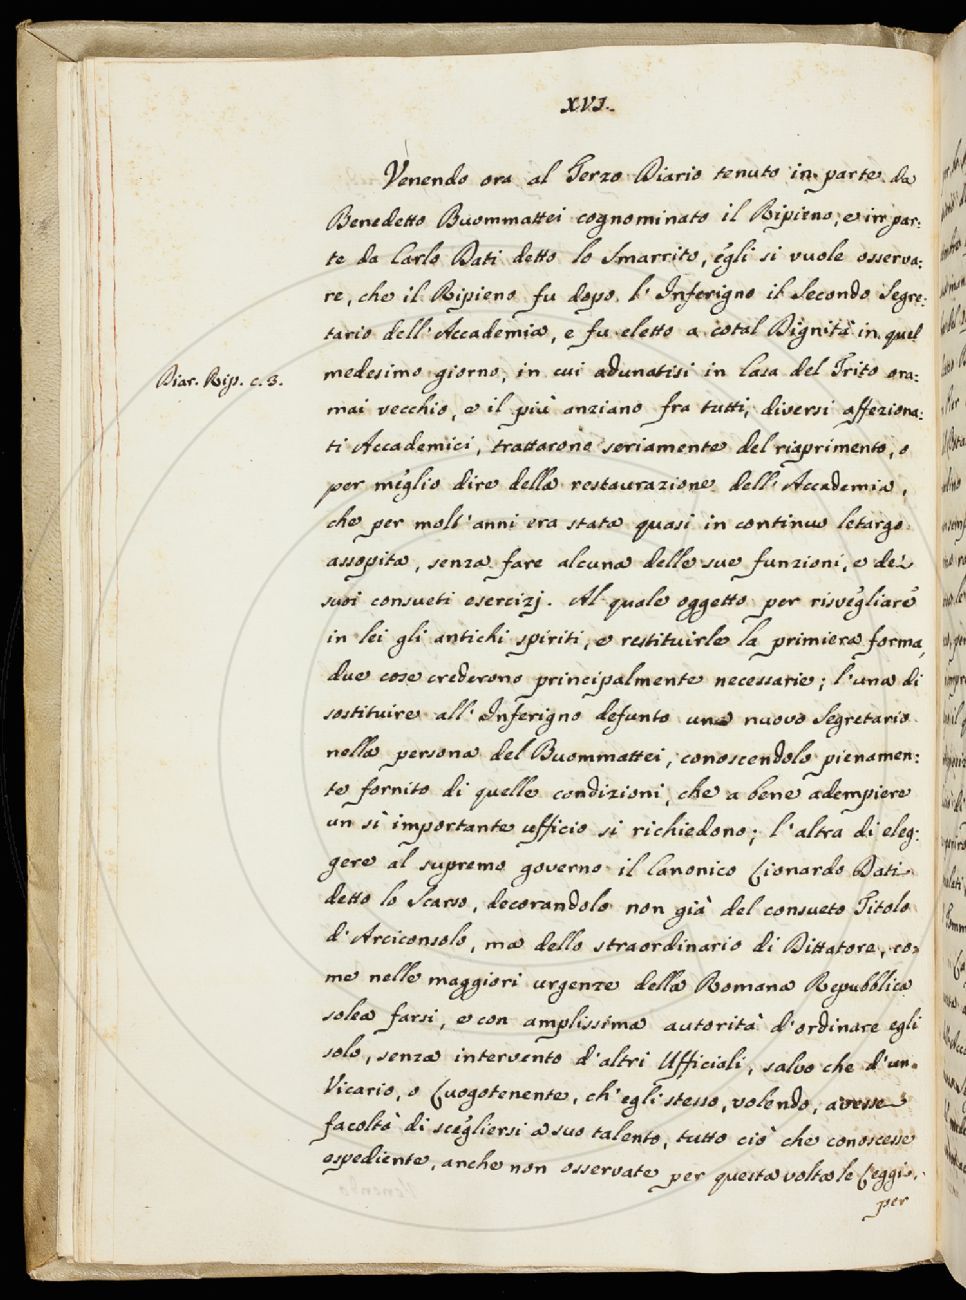 XVI.
Venendo ora al Terzo Diario tenuto in parte da
Benedetto Buommattei cognominato il Ripieno, e in par:
te da Carlo Dati detto lo Smarrito, egli si vuole osserva:
re, che il Ripieno fu dopo l'Inferigno il Secondo Segre:
tario dell'Accademia, e fu eletto a cotal Dignità in quel
Diar. Rip. c. 3.
medesimo giorno, in cui adunatisi in Casa del Trito ora:
mai vecchio, e il più anziano fra tutti, diversi affeziona:
ti Accademici, trattarono seriamente del riaprimento, o
per meglio dire della restaurazione dell'Accademia,
che per molt'anni era stata quasi in continuo letargo
assopita, senza fare alcuna delle sue funzioni, e de'
suoi consueti esercizj. Al quale oggetto per risvegliare
in lei gli antichi spiriti, e restituirle la primiera forma,
due cose crederono principalmente necessarie; l'una di
sostituire all'Inferigno defunto una nuovo Segretario
nella persona del Buommattei, conoscendolo pienamen:
te fornito di quelle condizioni, che a bene adempiere
un sì importante uffizio si richiedono; l'altra di eleg:
gere al supremo governo il Canonico Lionardo Dati
detto lo Scarso, decorandolo non già del consueto Titolo
d'Arciconsolo, ma dello straordinario di Dittatore, co:
me nelle maggiori urgenze della Romana Repubblica
solea farsi, e con amplissima autorità d'ordinare egli
solo, senza intervento d'altri Ufficioli, salvo che d'un
Vicario, o Luogotenente, ch'egli stesso, volendo, avesse
facoltà di scegliersi a suo talento, tutto ciò che conoscesse
espediente, anche non osservate per questa volta le Leggi,
per